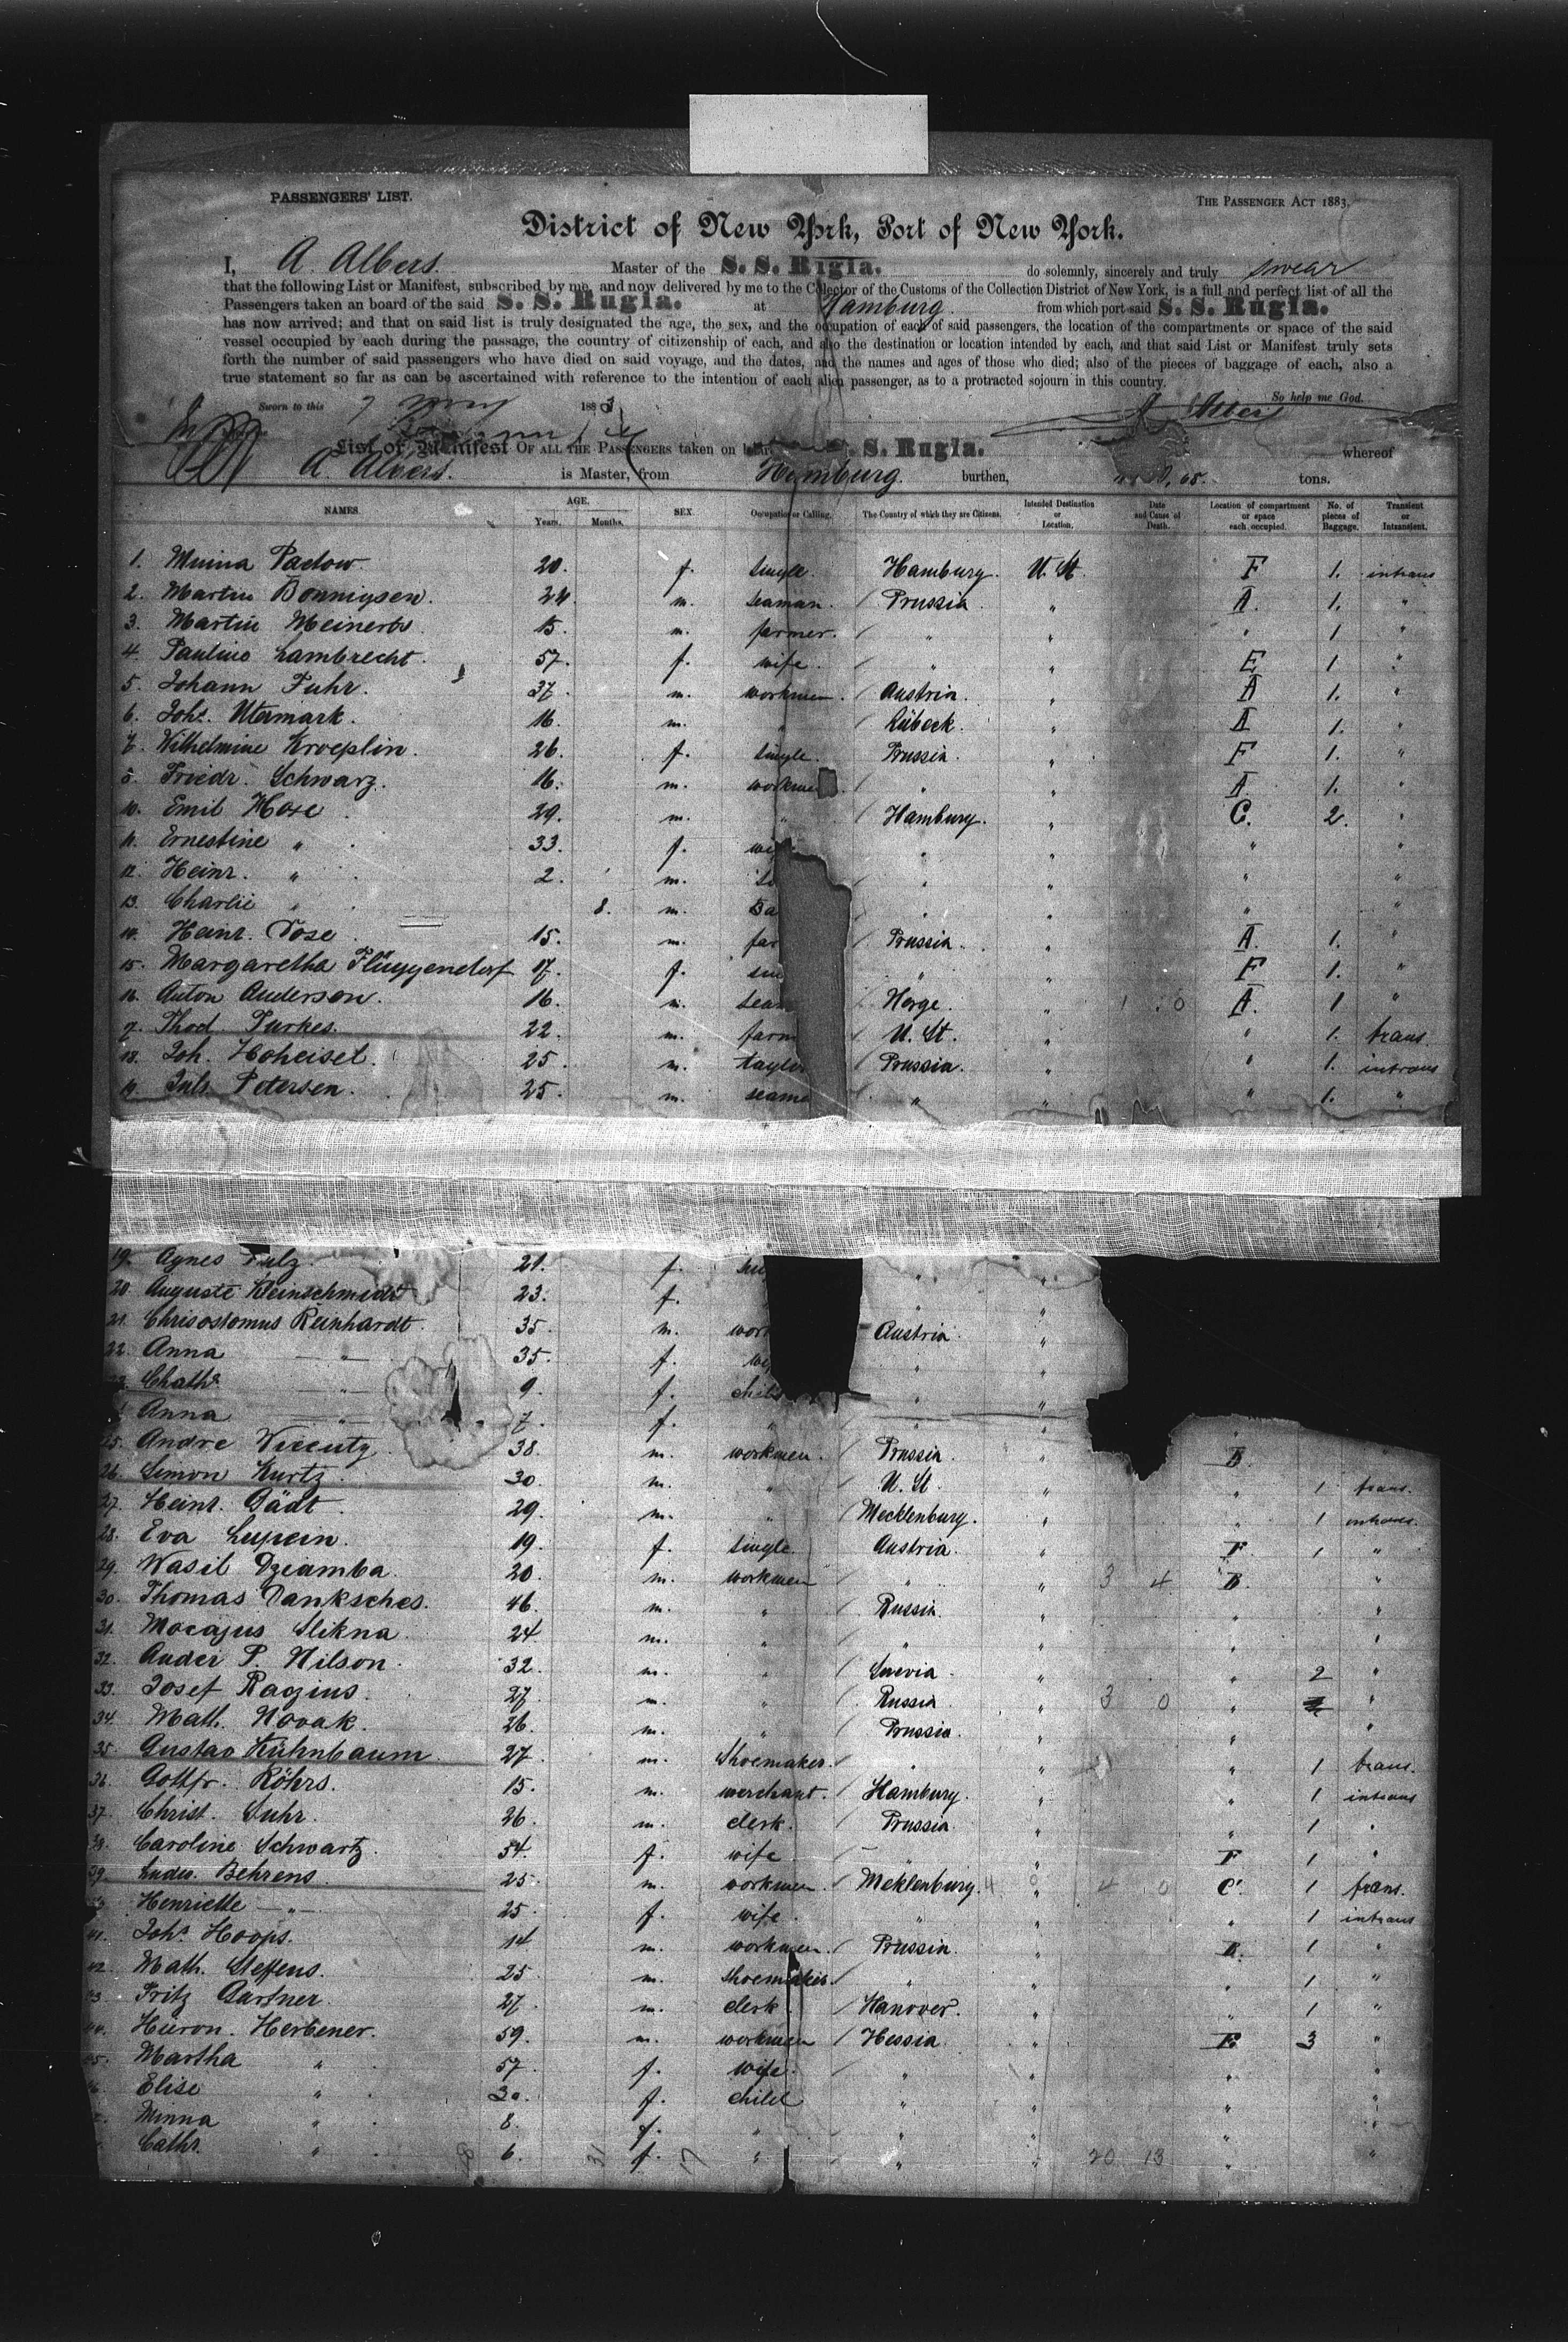 PASSENGERS' LIST.
THE PASSENGER ACT 1883.
District of New York, Port of New York.
I, A. Albers. Master of the S. S. Rugia. do solemnly, sincerely and truly swear
that the following List or Manifest, subscribed by me, and now delivered by me to the Collector of the Customs of the Collection District of New York, is a full and perfect list of all the
Passengers taken an board of the said S. S. Rugia. at Hamburg. from which port said S. S. Rugia.
has now arrived; and that on said list is truly designated the age, the sex, and the occupation of each of said passengers, the location of the compartments or space of the said
vessel occupied by each during the passage, the country of citizenship of each, and also the destination or location intended by each, and that said List or Manifest truly sets
forth the number of said passengers who have died on said voyage, and the dates, and the names and ages of those who died; also of the pieces of baggage of each, also a
true statement so far as can be ascertained with reference to the intention of each alien passenger, as to a protracted sojourn in this country.
So help me God.
Sworn to this 7 May 1883
List or Manifest OF ALL THE PASSENGERS taken on S. Rugia. whereof
A. Albers. is Master, from Hamburg. burthen, tons.
NAMES. AGE. Years. Months. SEX. Occupation or Calling. The Country of which they are Citizens. Intended Destination or Location. Date and Cause of Death. Location of compartment or space each occupied. No. of pieces of Baggage. Transient or Intransient.
1. Padow. 20. f. single. Hamburg. U. St. F 1. intrans
2. Martin Bonnigsen. 24 m. seaman. / Prussia " A. 1. "
3. Martin Meinerts 15. m. farmer. / " " " 1 "
4. Lambrecht. 57. f. wife. / " " E 1 "
5. Johann Fuhr. 37. m. workmen. / Austria. " A 1. "
6. Johs. Utermark. 16. m. " / Lübeck. " A 1. "
7. Wilhelmine Kroeplin. 26. f. single. Prussia. " F 1. "
Friedr. Schwarz. 16. m. / " " A. 1. "
10. Emil Hoxe 29. m. " / Hamburg. " C. 2. "
11. Ernestine " 33. f. " " " "
12. Heinr. " 2. m. / " " " "
13. Charlie " 8. m. / " " " "
14. Heinr. Tose 15. m. / Prussia. " A. 1. "
15. Margaretha Flüggendorf 17. f. " F 1. "
16. Anton Anderson. 16. m. / Norge. " A. 1 "
Thod. Turkes. 22. m. / U. St. " " 1. trans.
18. Joh. Hoheisel. 25. m. / Prussia. " " 1. intrans
19. Juls. Petersen. 25. m. / " " " 1. "
19. Agnes 21. f. " "
20. Auguste Kleinschmidt 23. f. " "
21. Chrisostomus Reinhardt. 35. m. Austria. "
22. Anna " 35. f. " "
Chath. " 9. f. " "
Anna " 7. f. " " "
25. Andre 38. m. workmen. / Prussia. " B. "
26. Simon Kurtz. 30. m. " U. St. " " 1 trans.
27. Heinr. Dädt. 29. m. " / Mecklenburg. " " 1 intrans.
28. Eva Lupein. 19. f. single. Austria. " F. 1 "
29. Wasil Dziamba. 20. m. workmen / " " 3 4 B. "
30. Thomas Danksches. 46. m. " / Russia. " " "
31. Mocajus Slikna 24. m. " / " " " "
32. Ander P. Nilson. 32. m. " / Suevia " " 2 "
33. Josef Razius. 27. m. " / Russia " 3 0 " "
34. Math. Novak. 26. m. " / Prussia. " " "
35. Gustav Kühnbaum 27. m. Shoemaker. / " " " 1 trans.
36. Gottfr. Röhrs. 15. m. merchant. / Hamburg. " " 1 intrans
37. Christ. Suhr. 26. m. clerk. / Prussia " " 1 "
38. Caroline Schwartz. 54. f. wife " " F 1 "
39. Ludw. Behrens 25. m. workmen. / Meklenburg. " 4 0 C. 1 trans.
Henriette " 25. f. wife. " " " 1 intrans
41. Johs. Hoops. 14. m. workmen. / Prussia. " B. 1 "
42. Math. Steffens. 25. m. shoemaker. / " " " 1 "
43. Fritz Gartner. 27. m. clerk. / Hanover. " " 1 "
44. Hieron. Herbener. 59. m. workmen / Hessia. " E. 3 "
45. Martha " 57. f. wife. " " " "
46. Elise " f. child " " " "
Minna " 8. f. " " " " "
Cathr. " 6. 31 f. 17 " " 20 13 " "